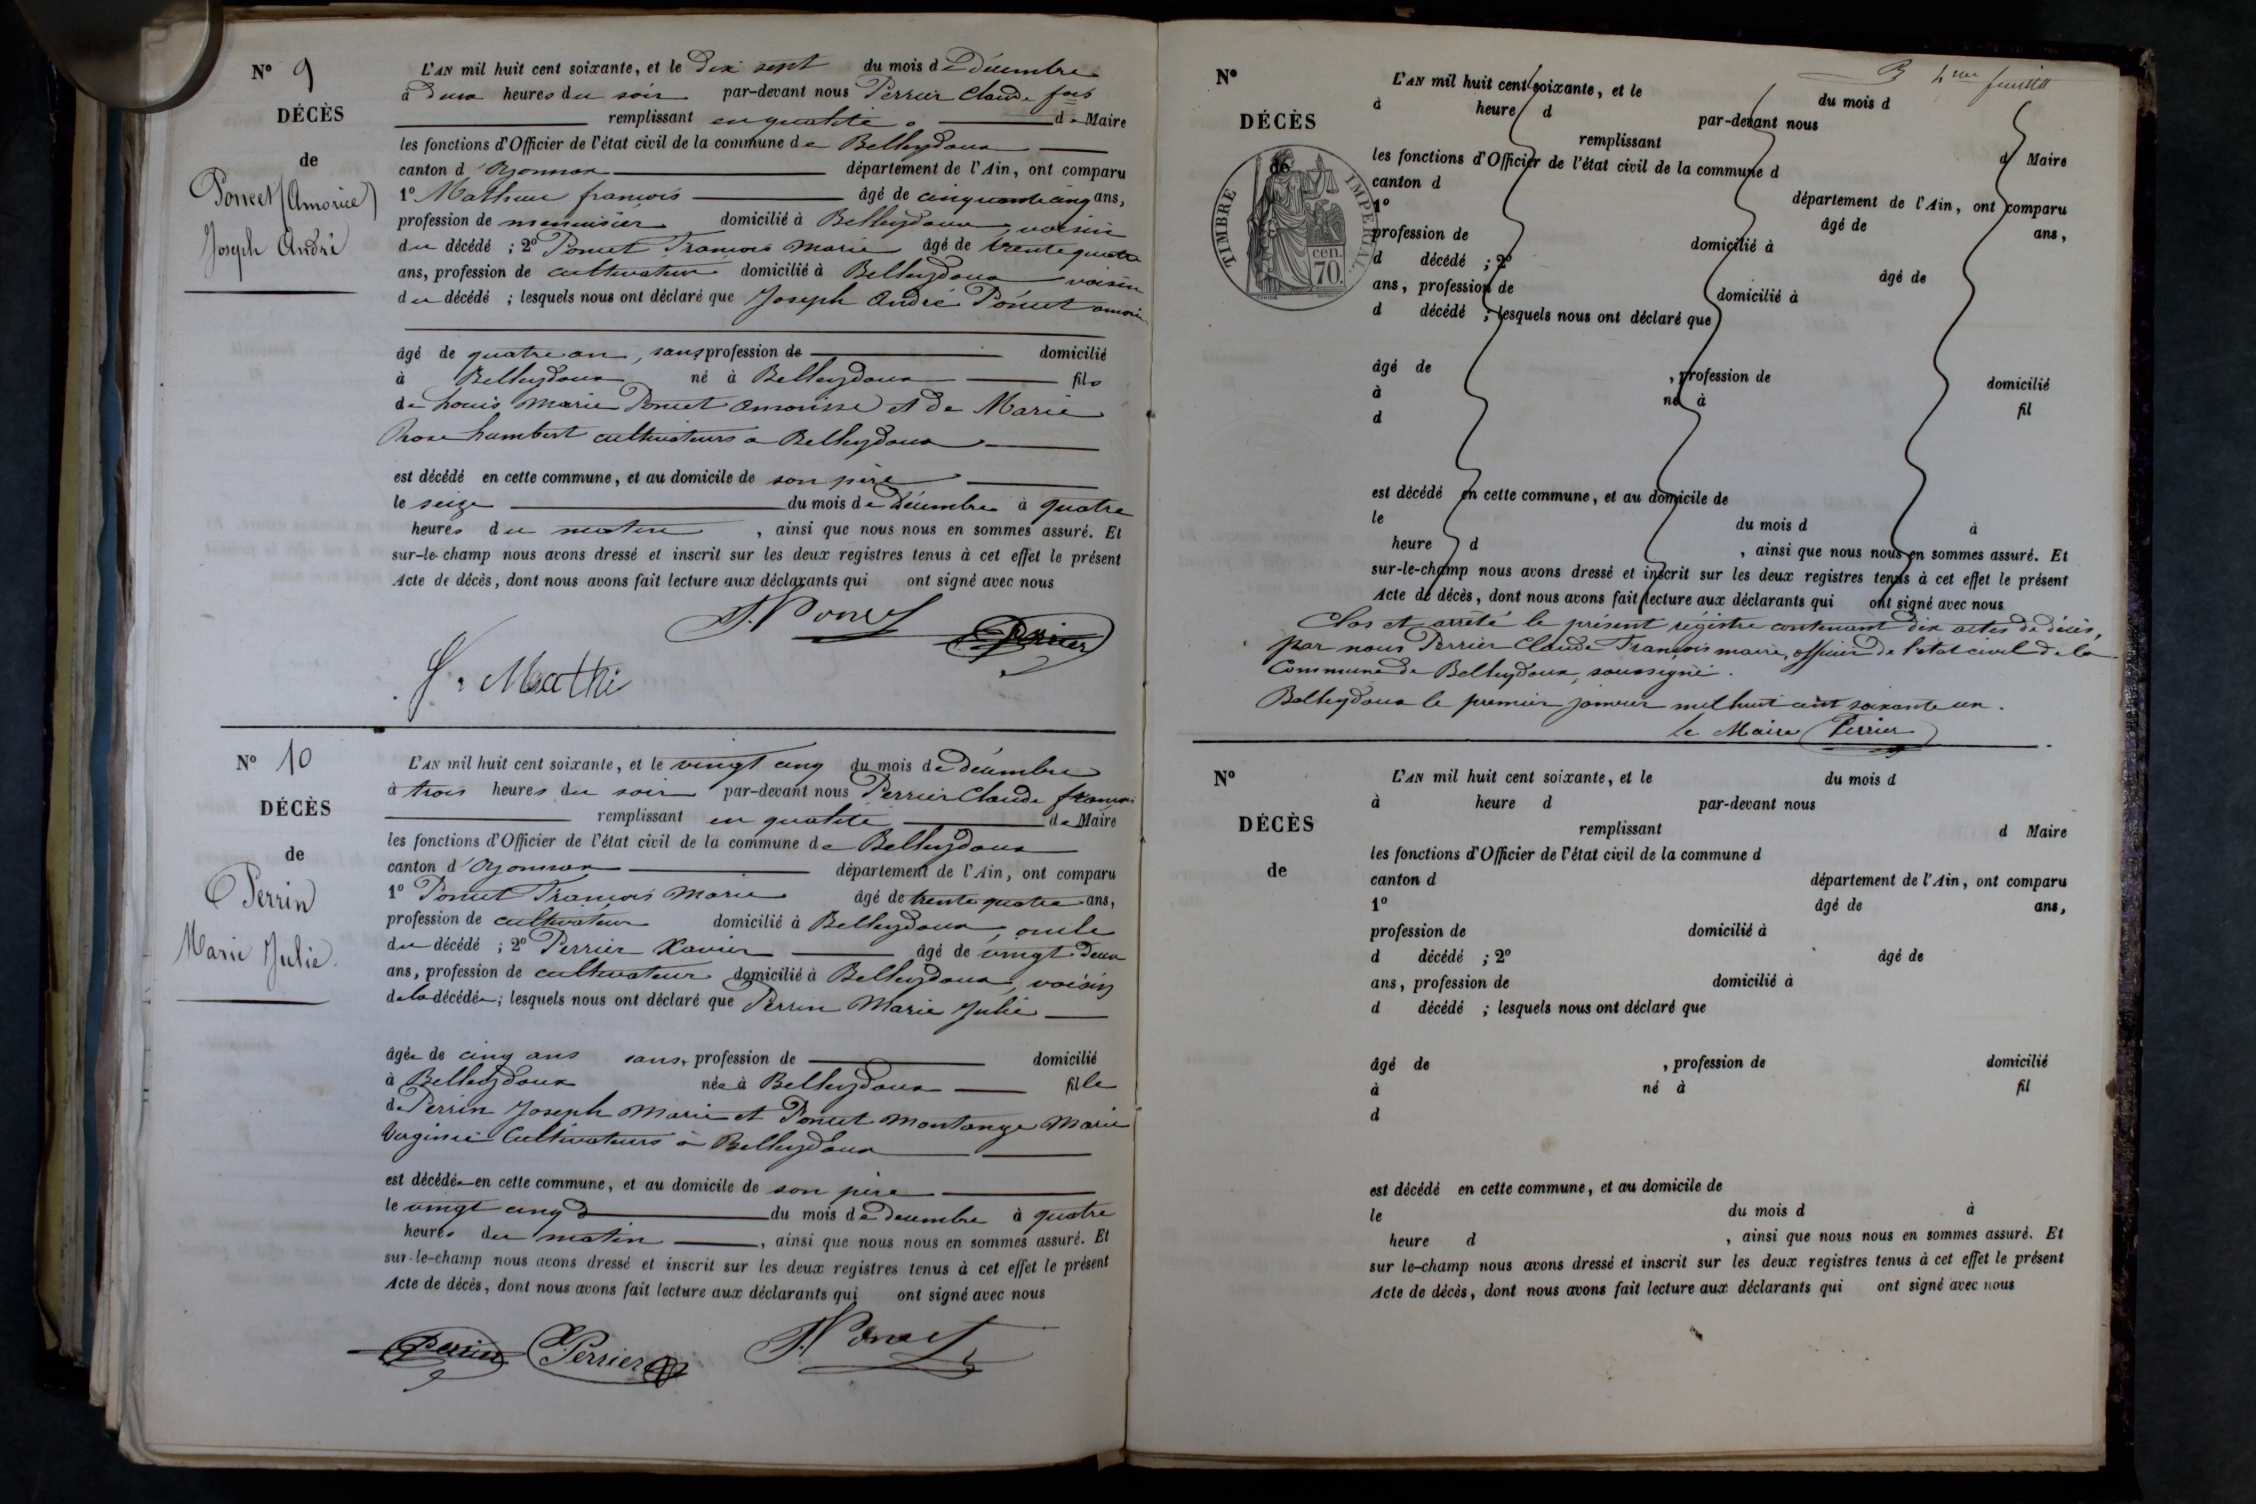 N° 9
DÉCÈS
de
Poncet (Amorice)
Joseph André
L'AN mil huit cent soixante, et le dix sept du mois de Décembre
à deux heures du soir par-devant nous Perrier Claude fois
remplissant en qualité de Maire
les fonctions d'Officier de l'état civil de la commune de Belleydoux
canton d'Oyonnax département de l'Ain, ont comparu
1° Mathieu françois âgé de cinquante cinq ans,
profession de menuisier domicilié à Belleydoux, voisin
du décédé ; 2° Poncet François Marie âgé de trente quatre
ans, profession de cultivateur domicilié à Belleydoux voisin
du décédé ; lesquels nous ont déclaré que Joseph André Poncet
âgé de quatre an, sans profession de domicilié
à Belleydoux né à Belleydoux fils
de Louis Marie Poncet Amorisse et de Marie
Rose Humbert cultivateurs a Belleydoux
est décédé en cette commune, et au domicile de son père
le seize du mois de Décembre à quatre
heures du matin, ainsi que nous nous en sommes assuré. Et
sur-le-champ nous avons dressé et inscrit sur les deux registres tenus à cet effet le présent
Acte de décès, dont nous avons fait lecture aux déclarants qui ont signé avec nous
Poncet
Perrier
Mathi
N° 10
DÉCÈS
de
Perrin
Marie Julie.
L'AN mil huit cent soixante, et le vingt cinq du mois de Décembre
à trois heures du soir par-devant nous Perrier Claude françois
remplissant en qualité de Maire
les fonctions d'Officier de l'état civil de la commune de Belleydoux
canton d'Oyonnax département de l'Ain, ont comparu
1° Poncet François Marie âgé de trente quatre ans,
profession de cultivateur domicilié à Belleydoux, oncle
du décédé ; 2° Perrier Xavier âgé de vingt deux
ans, profession de cultivateur domicilié à Belleydoux, voisin
de la décédée ; lesquels nous ont déclaré que Perrin Marie Julie
âgée de cinq ans sans, profession de domicilié
à Belleydoux née à Belleydoux fille
de Perrin Joseph Marie et Poncet Montange Marie
Virginie Cultivateurs à Belleydoux
est décédée en cette commune, et au domicile de son père
le vingt cinq du mois de Décembre à quatre
heures du matin, ainsi que nous nous en sommes assuré. Et
sur-le-champ nous avons dressé et inscrit sur les deux registres tenus à cet effet le présent
Acte de décès, dont nous avons fait lecture aux déclarants qui ont signé avec nous
Perrier Perrier Poncet
4me feuillet
N°
DÉCÈS
de
TIMBRE IMPERIAL
70 cen.
L'AN mil huit cent soixante, et le du mois d
à heure d par-devant nous
remplissant d Maire
les fonctions d'Officier de l'état civil de la commune d
canton d département de l'Ain, ont comparu
1° âgé de ans,
profession de domicilié à
d décédé ; 2° âgé de
ans, profession de domicilié à
d décédé ; lesquels nous ont déclaré que
âgé de , profession de domicilié
à né à fil
d
est décédé en cette commune, et au domicile de
le du mois d à
heure d , ainsi que nous nous en sommes assuré. Et
sur-le-champ nous avons dressé et inscrit sur les deux registres tenus à cet effet le présent
Acte de décès, dont nous avons fait lecture aux déclarants qui ont signé avec nous
Clos et arrêté le présent régistre contenant dix actes de décès,
par nous Perrier Claude François maire, officier de l'état civil de la
Commune de Belleydoux, soussigné.
Belleydoux le premier janvier mil huit cent soixante un.
le Maire Perrier
N°
DÉCÈS
de
L'AN mil huit cent soixante, et le du mois d
à heure d par-devant nous
remplissant d Maire
les fonctions d'Officier de l'état civil de la commune d
canton d département de l'Ain, ont comparu
1° âgé de ans,
profession de domicilié à
d décédé ; 2° âgé de
ans, profession de domicilié à
d décédé ; lesquels nous ont déclaré que
âgé de , profession de domicilié
à né à fil
d
est décédé en cette commune, et au domicile de
le du mois d à
heure d , ainsi que nous nous en sommes assuré. Et
sur le-champ nous avons dressé et inscrit sur les deux registres tenus à cet effet le présent
Acte de décès, dont nous avons fait lecture aux déclarants qui ont signé avec nous